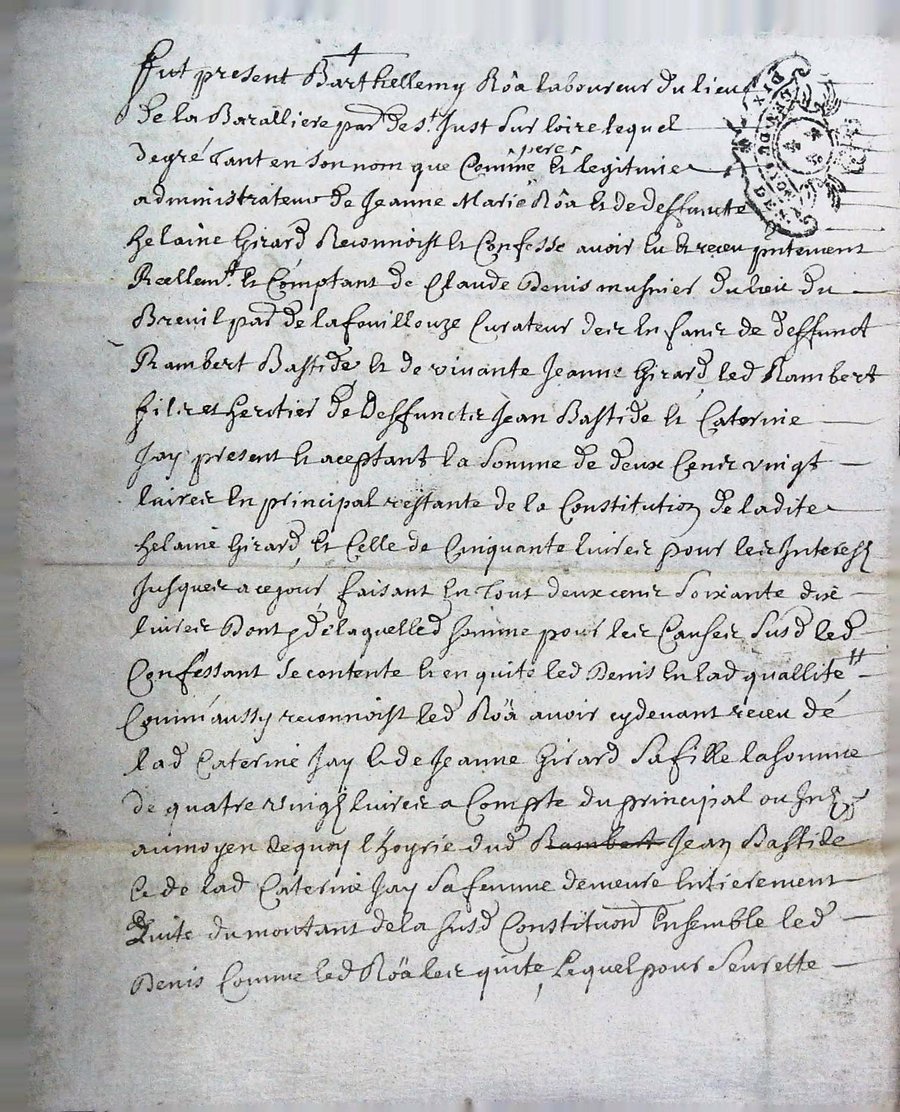 Fut present Barthellemy Rôa laboureur du lieu
de la Baralliere par de St Just sur loire lequel
de gré tant en son nom que Comme pere et legitime
administrateur de Jeanne Marie Rôa et de deffuncte
helaine Girard Reconnoist et Confesse avoir eu et receu pntement
Reellemt et Comptant de Claude Denis musnier du lieu du
Breuil par de lafouillouze Curateur des enfans de deffunct
Rambert Bastide et de vivante Jeanne Girard, led Rambert
fils et heritier de deffuncts Jean Bastide et Caterine
Jay present et aceptant la somme de deux Cens vingt
livres en principal restante de la Constitution de ladite
helaine Girard, et Celle de Cinquante livres pour les Interests
Jusques a ce jour, faisant en tout deux cens soixante dix
livres Dont de laquelle somme pour les Causes susd led
Confessant se contente et en quite led Denis en lad quallite
Comm'aussy reconnoist led Rôa avoir cydevant receu de
lad Caterine Jay et de Jeanne Girard sa fille la somme
de quatre vingt livres a Compte du principal ou
au moyen de quoy l'hoyrie dud Rambert Jean Bastide
et de lad Caterine Jay sa femme demeure entierement
Quite du montant de la susd Constitution Ensemble led
Denis Comme led Rôa les quite, Lequel pour seurette
DIX DEN